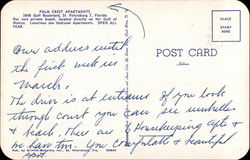 PALM CREST APARTMENTS
3848 Gulf Boulevard, St. Petersburg 7, Florida
Our own private beach, located directly on the Gulf of
Mexico. Luxurious one bedroom Apartments. OPEN ALL
YEAR.
POST CARD
Address
Our address until
the first week in
March.
The driv is at entrance If you look
through court you can see umbrellas
& beach. There are Housekeeping apts &
we have two. Very Comfortable & beautiful
spot